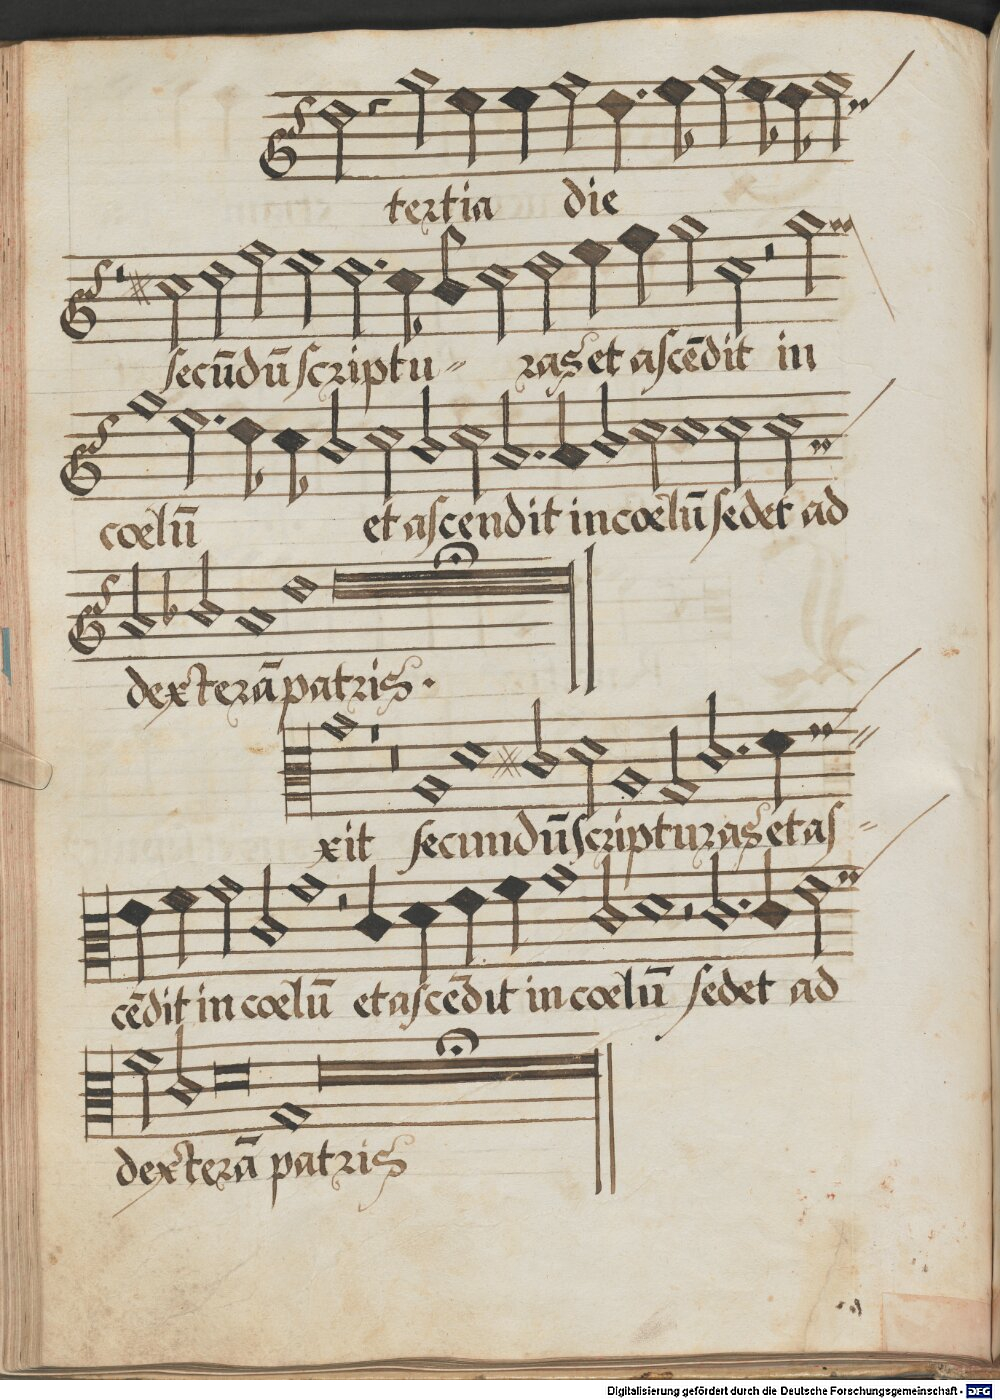 tertia die
secūdū scriptu⸗ ras et ascēdit in
coelū et ascendit in coelū sedet ad
dexterā patris.
xit secundū scripturas et as⸗
cēdit in coelū et ascēdit in coelū sedet ad
dexterā patris
Digitalisierung gefördert durch die Deutsche Forschungsgemeinschaft - DFG